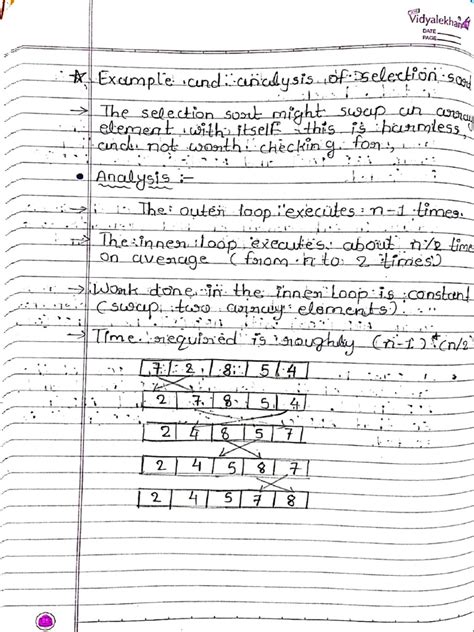 Vidyalekhan
DATE
PAGE
Example and analysis of selection sort
→ The selection sort might swap an array
element with itself this is harmless,
and not worth checking for,
• Analysis :-
→ The outer loop executes n-1 times
→ The inner loop executes about n/2 time
on average (from n to 2 times)
→ Work done in the inner loop is constant
(swap two array elements)
→ Time required is roughly (n-1)*(n/2
7 2 8 5 4
2 7 8 5 4
2 4 8 5 7
2 4 5 8 7
2 4 5 7 8